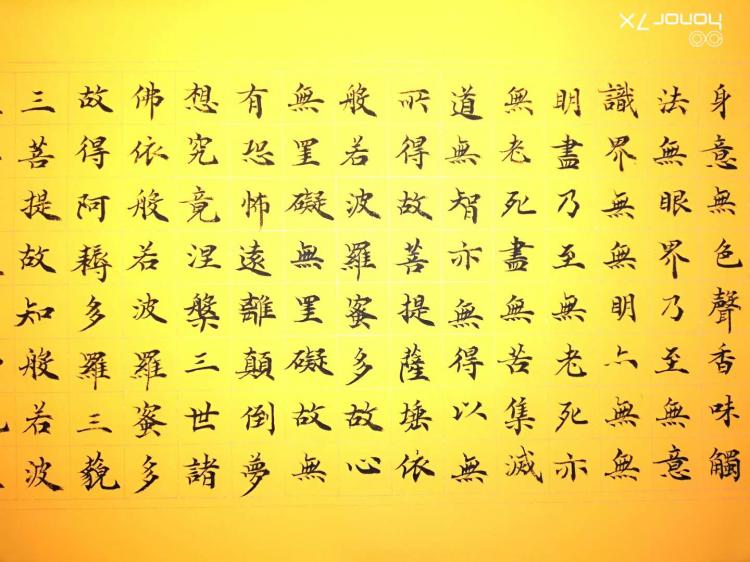 身意無色聲香味觸
法無眼界乃至無意
識界無無明亦無無
明盡乃至無老死亦
無老死盡無苦集滅
道無智亦無得以無
所得故菩提薩埵依
般若波羅蜜多故心
無罣礙無罣礙故無
有恐怖遠離顛倒夢
想究竟涅槃三世諸
佛依般若波羅蜜多
故得阿耨多羅三藐
三菩提故知般若波
honor 7X